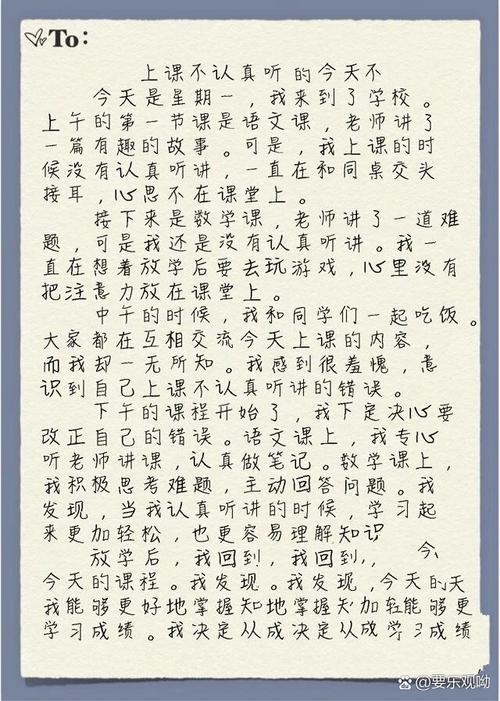 To:
上课不认真听的今天不
今天是星期一，我来到了学校。
上午的第一节课是语文课，老师讲了
一篇有趣的故事。可是，我上课的时
候没有认真听讲，一直在和同桌交头
接耳，心思不在课堂上。
接下来是数学课，老师讲了一道难
题，可是我还是没有认真听讲。我一
直在想着放学后要去玩游戏，心里没有
把注意力放在课堂上。
中午的时候，我和同学们一起吃饭。
大家都在互相交流今天上课的内容，
而我却一无所知。我感到很羞愧，意
识到自己上课不认真听讲的错误。
下午的课程开始了，我下定决心要
改正自己的错误。语文课上，我专心
听老师讲课，认真做笔记。数学课上，
我积极思考难题，主动回答问题。我
发现，当我认真听讲的时候，学习起
来更加轻松，也更容易理解知识
放学后，我回到，我回到，，今，
今天的课程。我发现。我发现，今天的天
我能够更好地掌握知地掌握知加轻能够更
学习成绩。我决定从成决定从放学习成绩
@要乐观呦